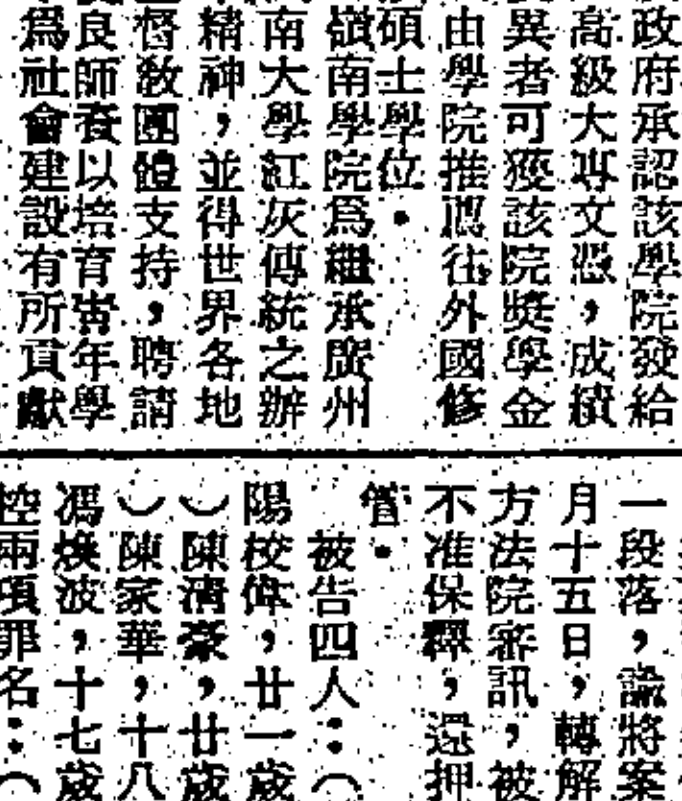 政府承認該學院發給
高級大專文憑，成績
異者可獲該院獎學金
由學院推薦往外國修
碩士學位。
嶺南學院為繼承廣州
南大學紅灰傳統之辦
精神，並得世界各地
督教團體支持，聘請
良師養以培育青年學
爲社會建設有所貢獻
一段落，諭將案
月十五日，轉解
方法院審訊，被
不准保釋，還押
管。
被告四人：（
陽校偉，廿一歲
）陳清豪，廿歲
）陳家華，十八
馮煥波，十七歲
控兩項罪名：（